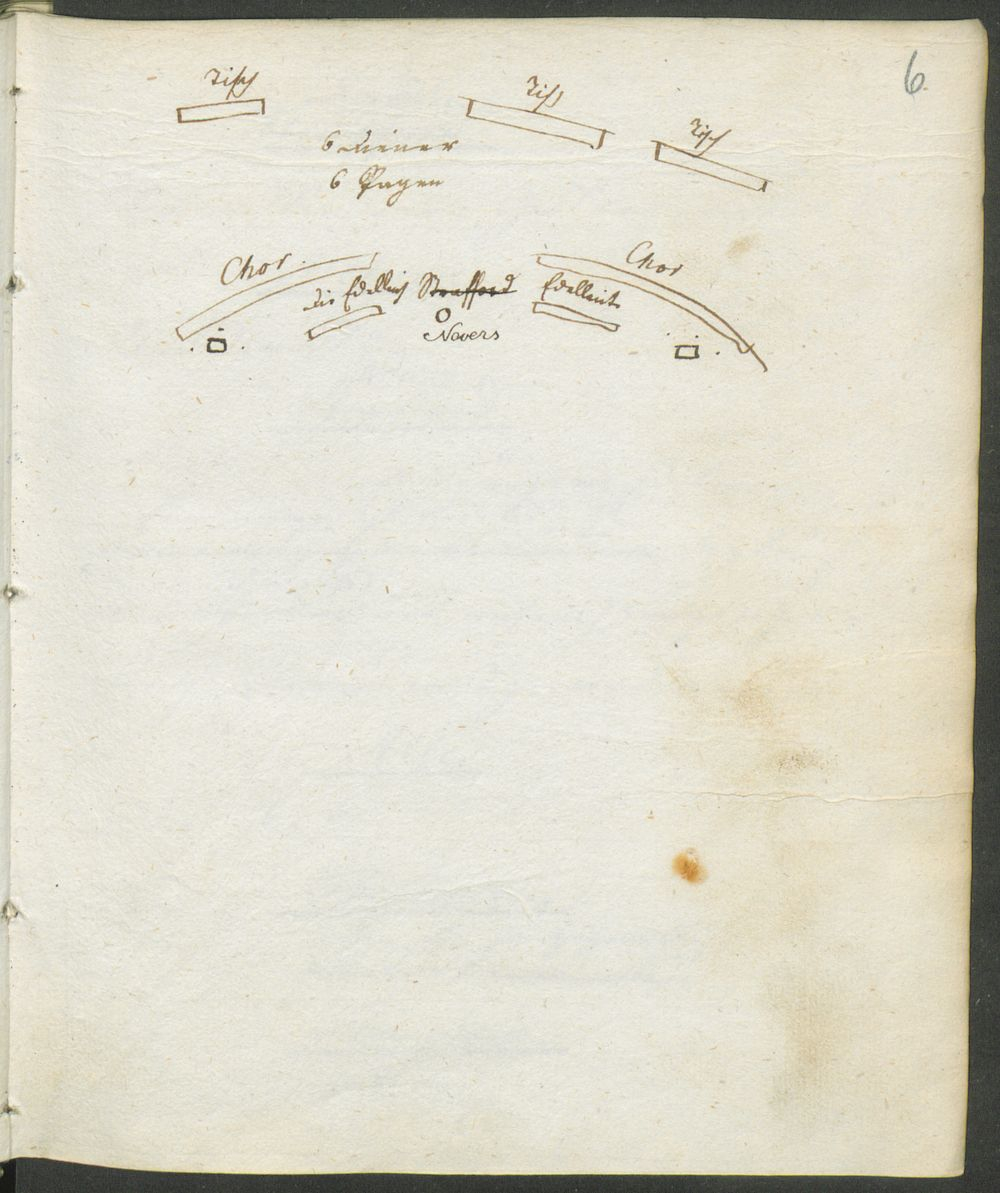 6.
Tisch
Tisch
Tisch
6 Diener
6 Pagen
Chor
Chor
Die Edelleute Strafford Edelleute
Nevers